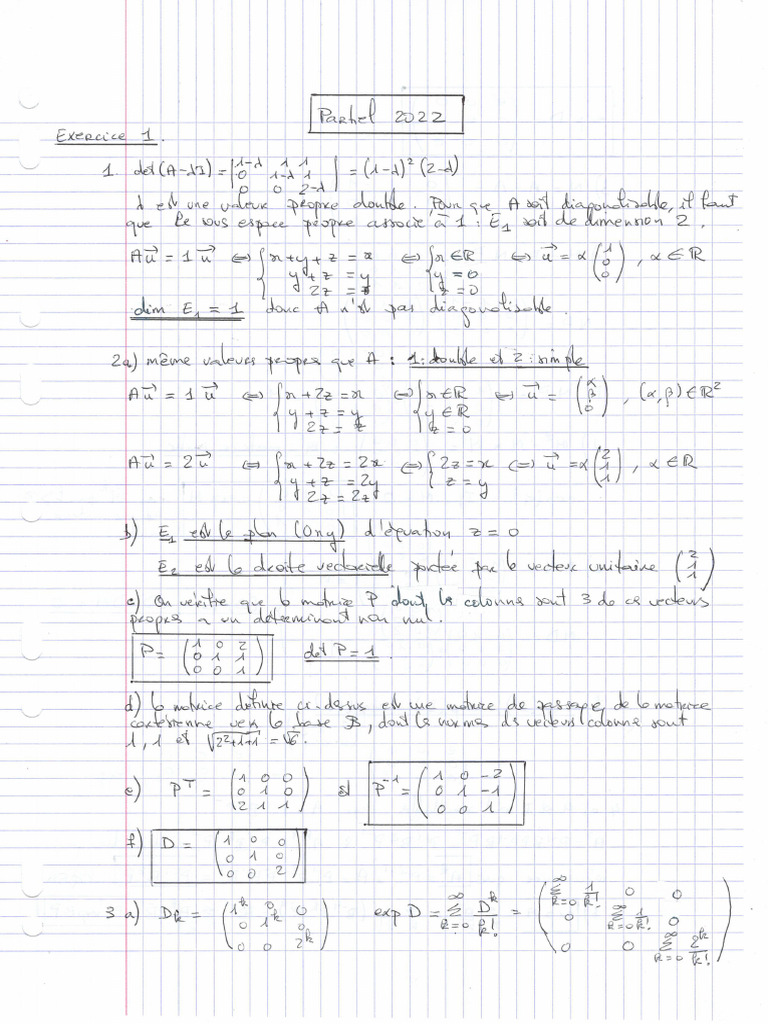 Partiel 2022
Exercice 1.
1. det(A-λI) = |1-λ 1 1; 0 1-λ 1; 0 0 2-λ| = (1-λ)² (2-λ)
1 est une valeur propre double. Pour que A soit diagonalisable, il faut
que le sous espace propre associé à 1 : E₁ soit de dimension 2.
Au⃗ = 1u⃗ ⇔ {x+y+z = x; y+z = y; 2z = z ⇔ {x∈ℝ; y = 0; z = 0 ⇔ u⃗ = α(1; 0; 0), α∈ℝ
dim E₁ = 1 donc A n'est pas diagonalisable.
2a) même valeurs propres que A : 1: double et 2: simple
Au⃗ = 1u⃗ ⇔ {x+2z = x; y+z = y; 2z = z ⇔ {x∈ℝ; y∈ℝ; z = 0 ⇔ u⃗ = (α; β; 0), (α,β)∈ℝ²
Au⃗ = 2u⃗ ⇔ {x+2z = 2x; y+z = 2y; 2z = 2z ⇔ {2z = x; z = y ⇔ u⃗ = α(2; 1; 1), α∈ℝ
b) E₁ est le plan (Oxy) d'équation z = 0
E₂ est la droite vectorielle portée par le vecteur unitaire (2; 1; 1)
c) On vérifie que la matrice P dont les colonnes sont 3 de ces vecteurs
propres a un déterminant non nul.
P = (1 0 2; 0 1 1; 0 0 1) det P = 1.
d) la matrice définie ci-dessus est une matrice de passage de la matrice
cartésienne vers la base B, dont les normes des vecteurs colonne sont
1, 1 et √(2²+1+1) = √6.
e) Pᵀ = (1 0 0; 0 1 0; 2 1 1) et P⁻¹ = (1 0 -2; 0 1 -1; 0 0 1)
f) D = (1 0 0; 0 1 0; 0 0 2)
3 a) Dk = (1ᵏ 0 0; 0 1ᵏ 0; 0 0 2ᵏ) exp D = Σ_{k=0}^{∞} Dᵏ/k! = (Σ_{k=0}^{∞} 1/k! 0 0; 0 Σ_{k=0}^{∞} 1/k! 0; 0 0 Σ_{k=0}^{∞} 2ᵏ/k!)